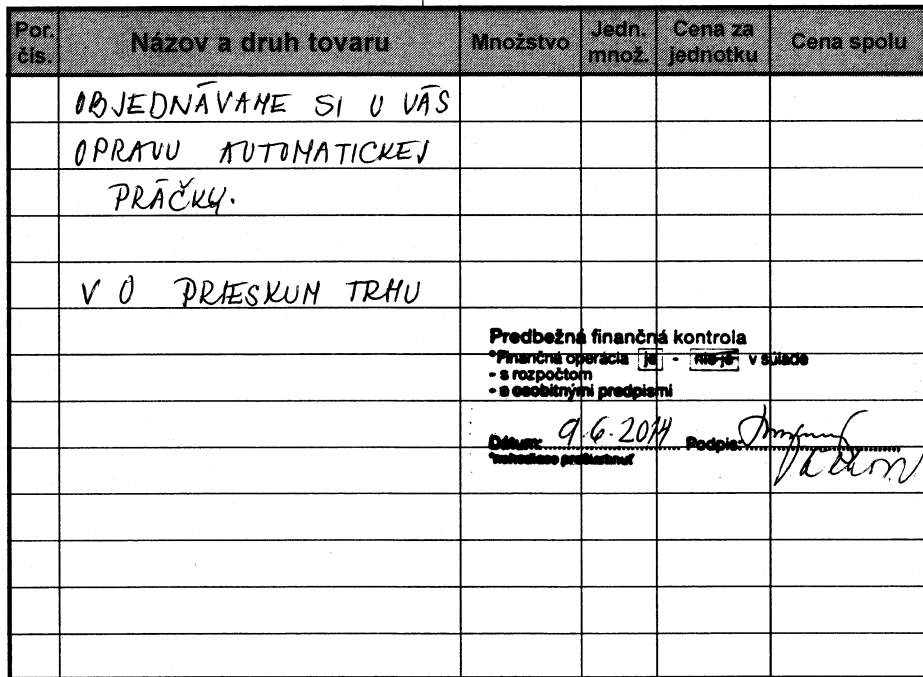 Por. čís. Názov a druh tovaru Množstvo Jedn. množ. Cena za jednotku Cena spolu
OBJEDNÁVAME SI U VÁS
OPRAVU AUTOMATICKEJ
PRÁČKY.
V O PRIESKUM TRHU
Predbežná finančná kontrola
*Finančná operácia je - nie je v súlade
- s rozpočtom
- s osobitnými predpismi
Dátum: 9.6.2014 Podpis:
*nehodiace prečiarknuť